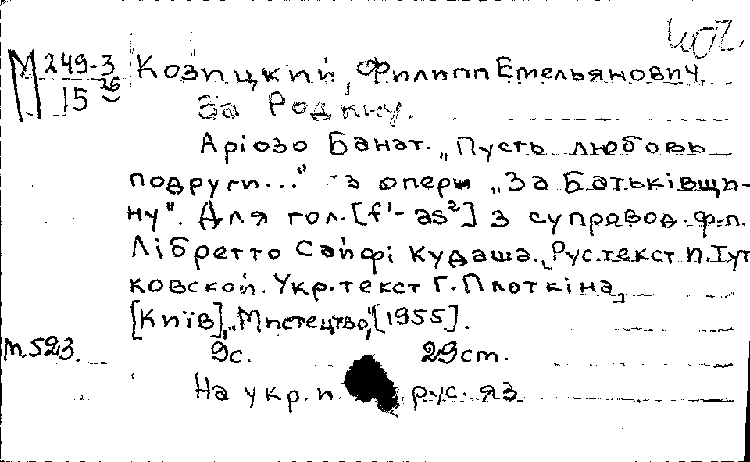 402
М 249-3 Козицкий, Филипп Емельянович.
15 26 За Родину.
Аріозо Банат. „Пусть любовь
подруги..." з опери „За Батьківщи-
ну". Для гол. [f¹-as²] з супровод. ф.п.
Лібретто Сайфі Кудаша. Рус. текст П. Тут
ковской. Укр. текст Г. Плоткіна,
[Київ], „Мистецтво", [1955].
М.523. 9с. 29 cm.
На укр. и рус. яз.